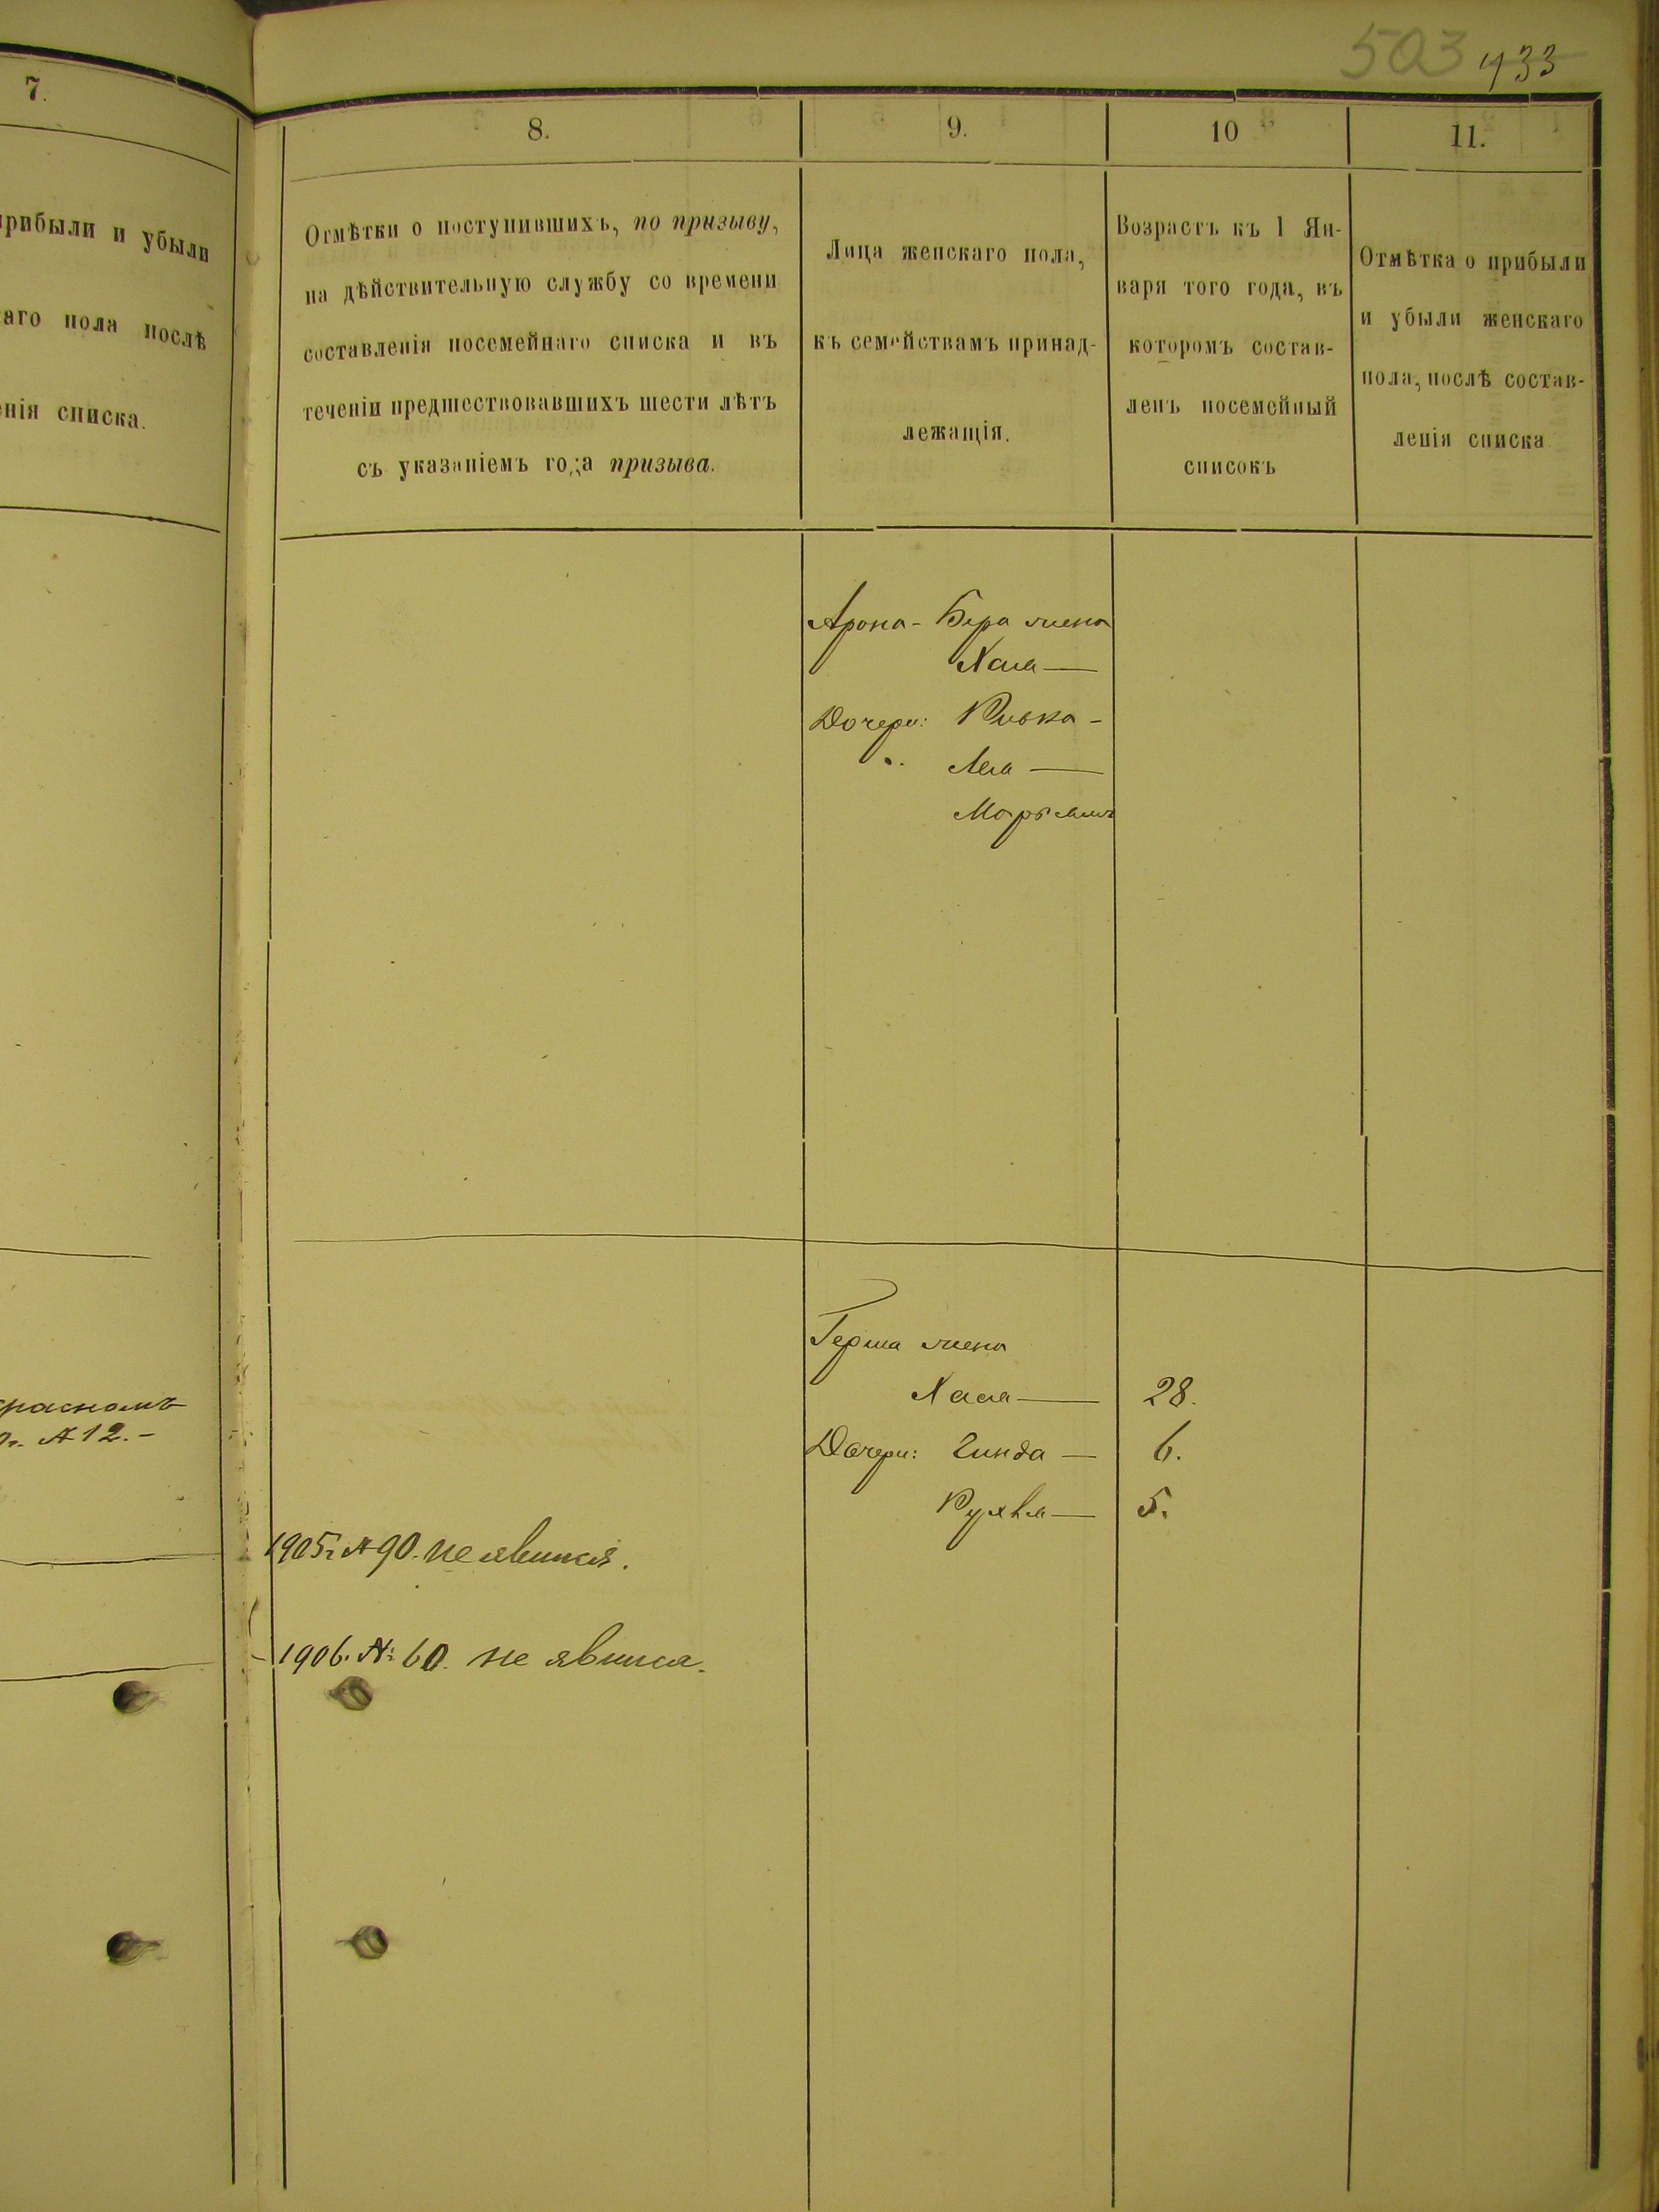 503 433
7.
прибыли и убыли
аго пола послѣ
енія списка.
расномъ
А12.-
8.
Отмѣтки о поступившихъ, по призыву,
на дѣйствительную службу со времени
составленія посемейнаго списка и въ
теченіи предшествовавшихъ шести лѣтъ
съ указаніемъ года призыва.
1905г №90. не явился.
1906. №: 60. не явился.
9.
Лица женскаго пола,
къ семействамъ принад-
лежащія.
Арона-Бера жена
Хая —
Дочери: Ривка -
" Леа —
Марьямъ
Герша жена
Хася —
Дочери: Гинда —
Рухля —
10
Возрастъ къ 1 Ян-
варя того года, въ
которомъ состав-
ленъ посемейный
списокъ
28.
6.
5.
11.
Отмѣтка о прибыли
и убыли женскаго
пола, послѣ состав-
ленія списка